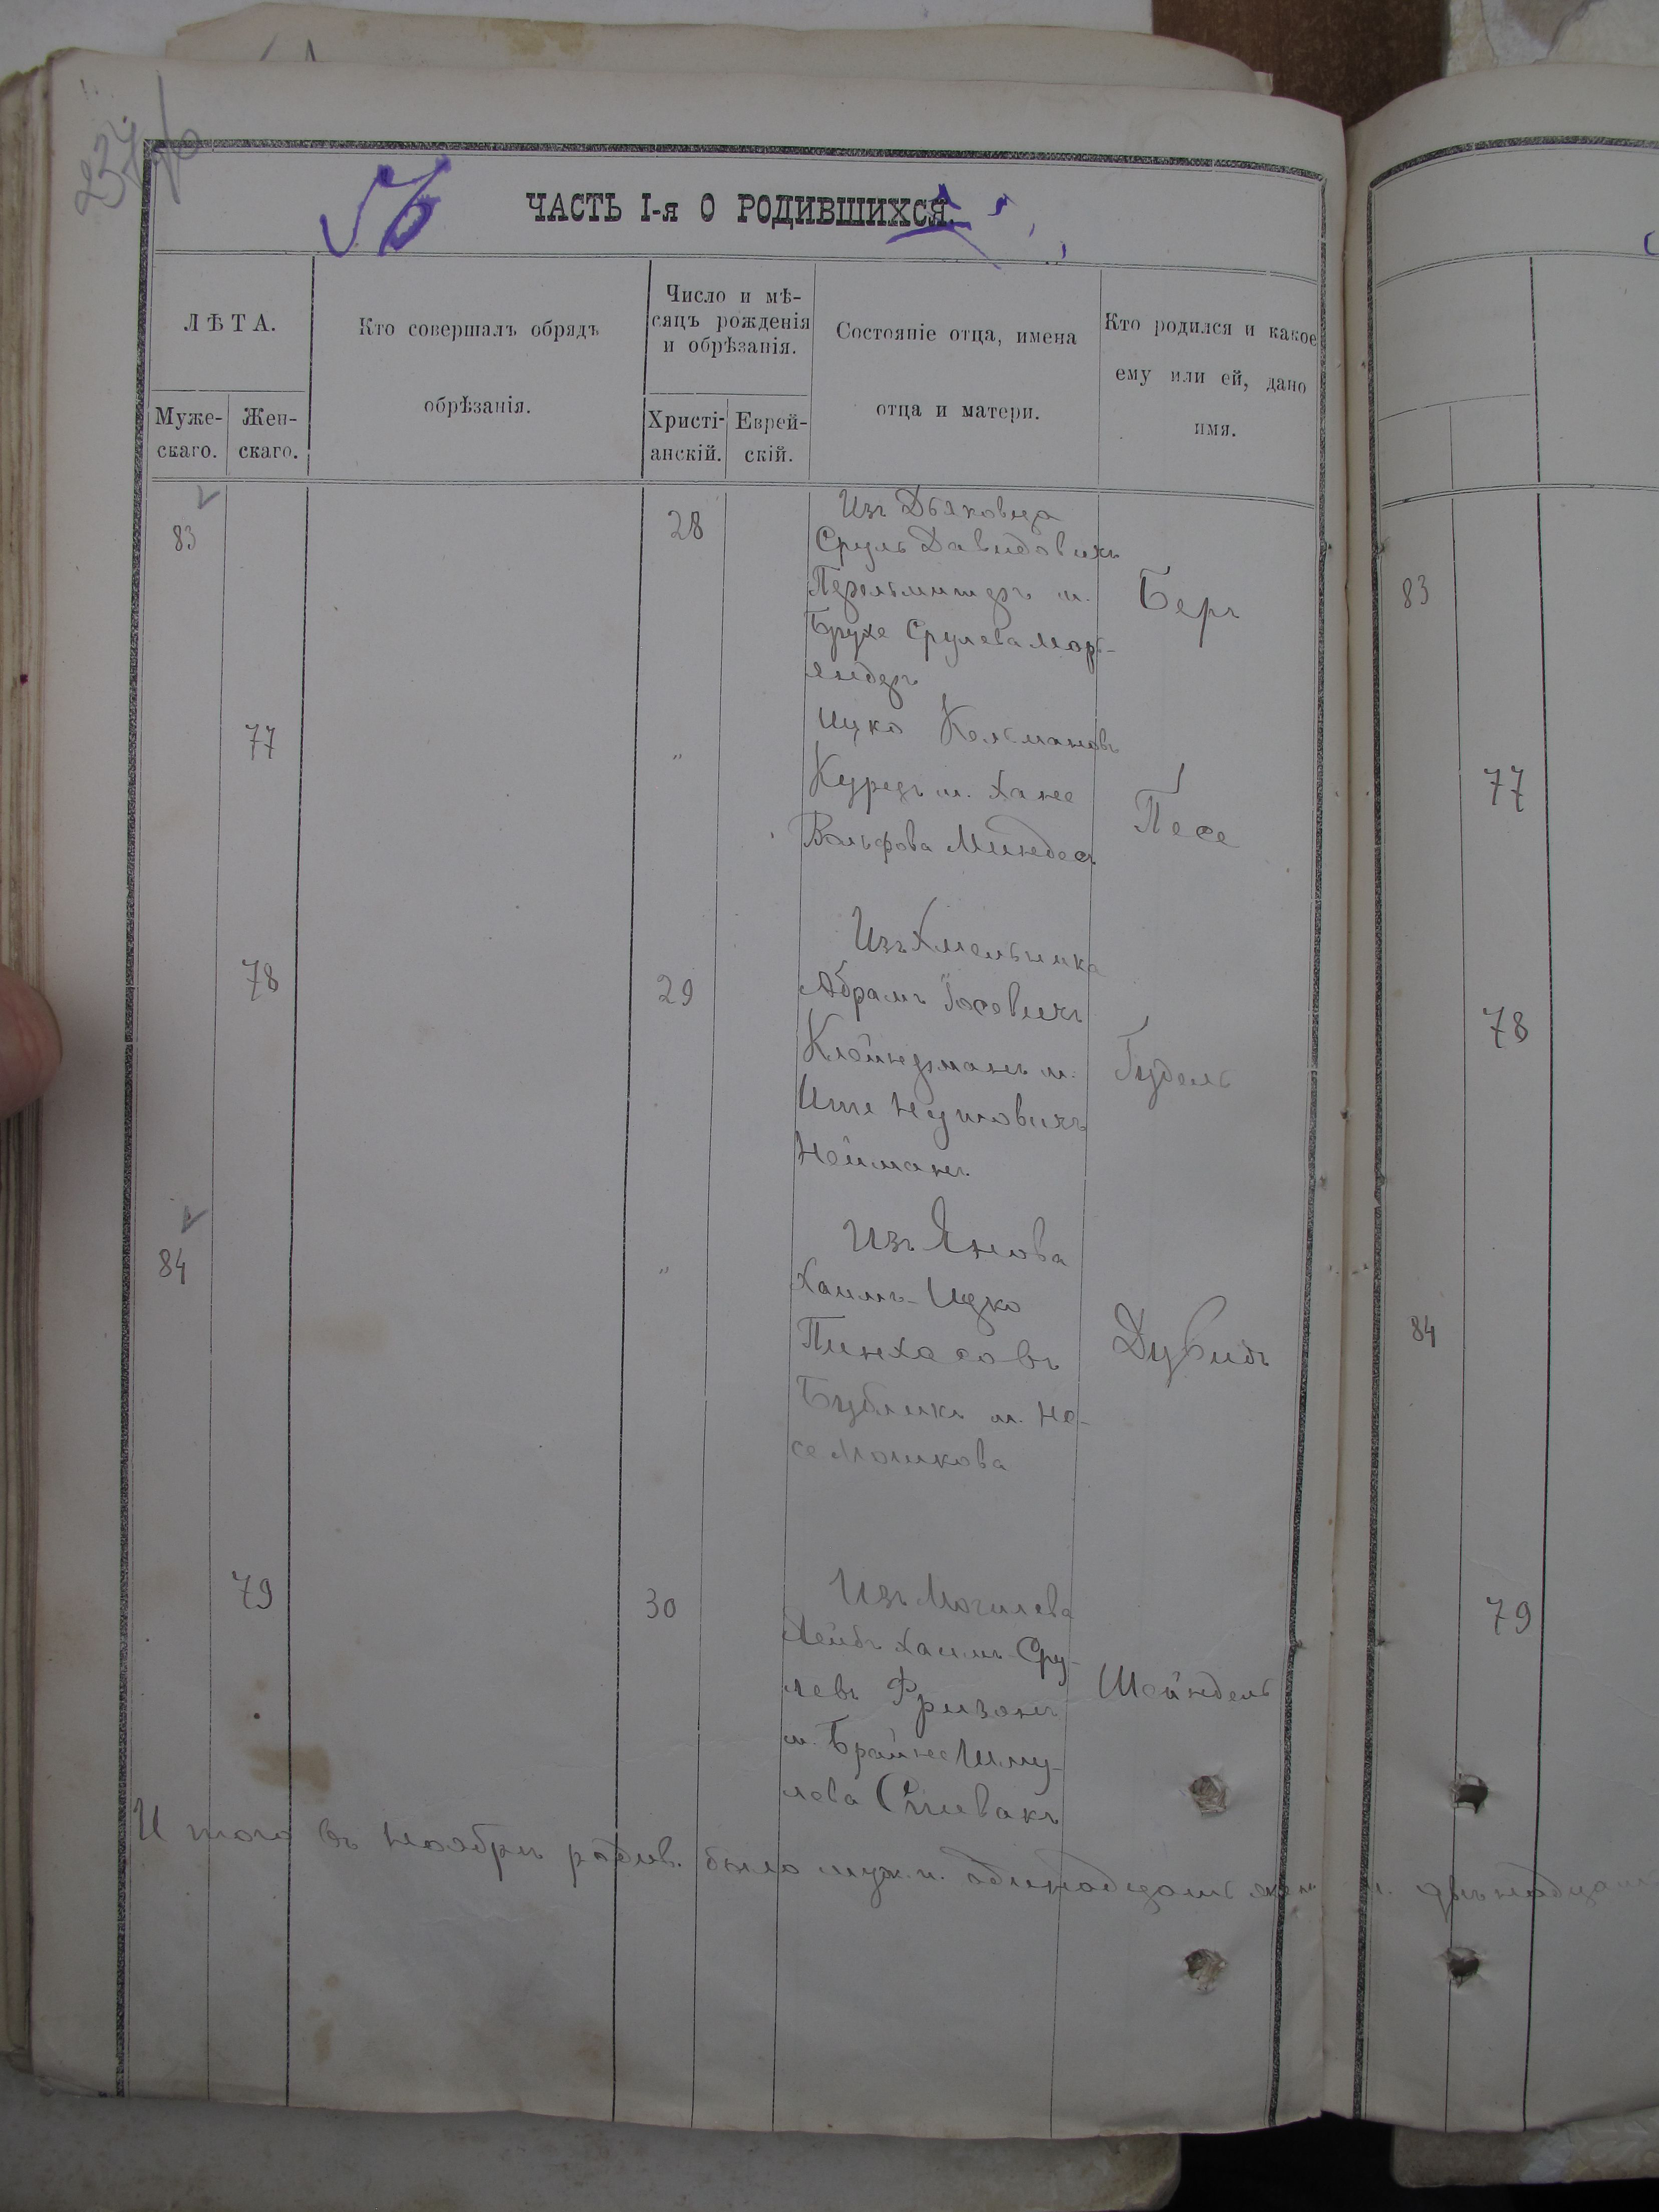 237 об
56
ЧАСТЬ I-я О РОДИВШИХСЯ.
ЛѢТА.
Муже-
скаго.
Жен-
скаго.
Кто совершалъ обрядъ
обрѣзанія.
Число и мѣ-
сяцъ рожденія
и обрѣзанія.
Христі-
анскій.
Еврей-
скій.
Состояніе отца, имена
отца и матери.
Кто родился и какое
ему или ей, дано
имя.
83
28
Изъ Дьяковца
Сруль Давидовичъ
Перельмитеръ м.
Брухе Срулева Мар-
яндеръ
Беръ
83
77
"
Ицко Кельмановъ
Курецъ м. Хане
Вольфова Миндесъ
Песе
77
78
29
Изъ Хмельника
Абрамъ Іосевичъ
Клейнерманъ м.
Ите Нутовичъ
Нейманъ
Гудель
78
84
"
Изъ Янова
Хаимъ-Ицко
Пинхасовъ
Бубликъ м. Не-
се Мошкова
Дувидъ
84
79
30
Изъ Могилева
Лейбъ Хаимъ Сру-
левъ Фризанъ
м. Брайне Шму-
лева Спивакъ
Шейндель
79
Итого въ Ноябрѣ родив. было муж. п. одинадцать жен. п. двѣнадцать